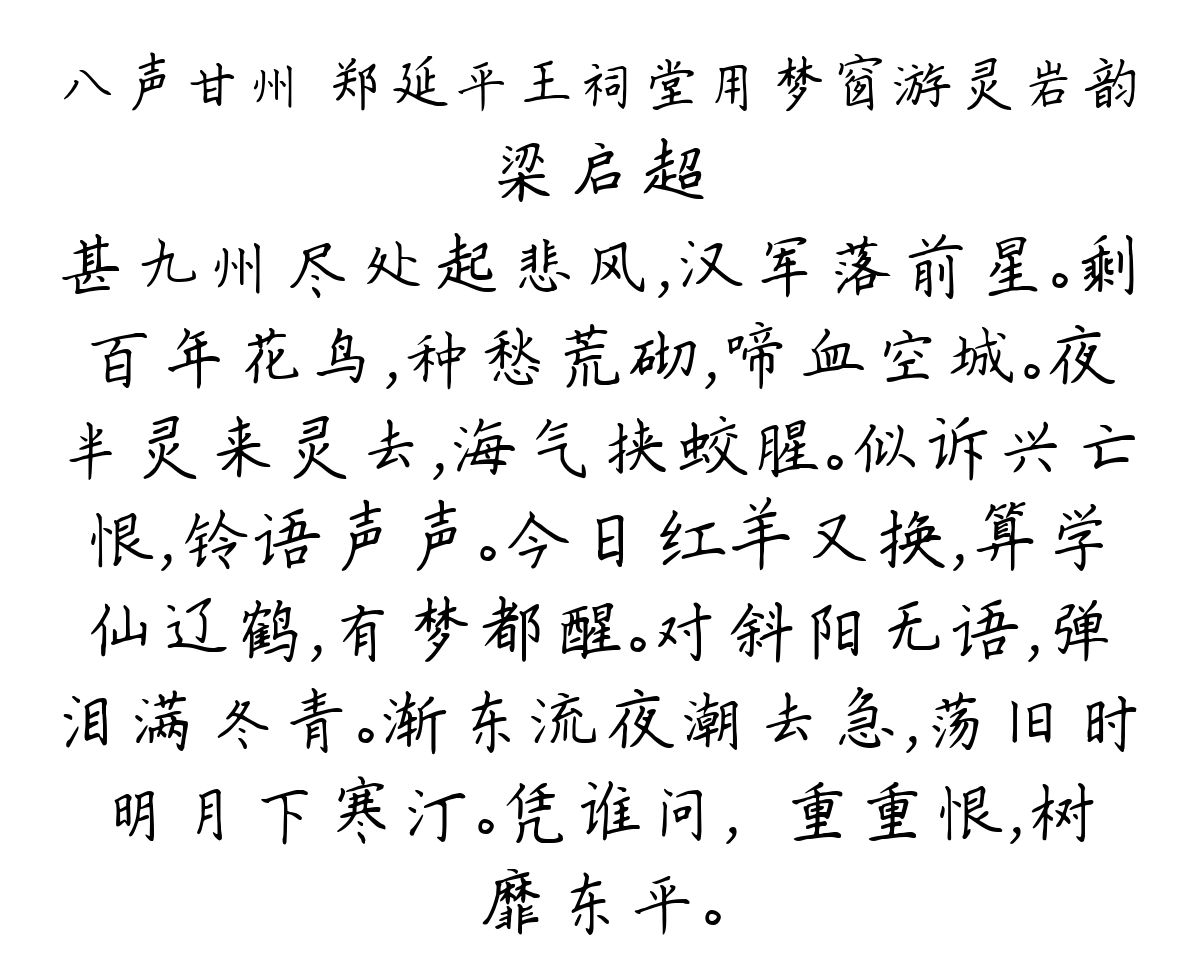 八声甘州 郑延平王祠堂用梦窗游灵岩韵
梁启超
甚九州尽处起悲风,汉军落前星。剩
百年花鸟,种愁荒砌,啼血空城。夜
半灵来灵去,海气挟蛟腥。似诉兴亡
恨,铃语声声。今日红羊又换,算学
仙辽鹤,有梦都醒。对斜阳无语,弹
泪满冬青。渐东流夜潮去急,荡旧时
明月下寒汀。凭谁问, 重重恨,树
靡东平。